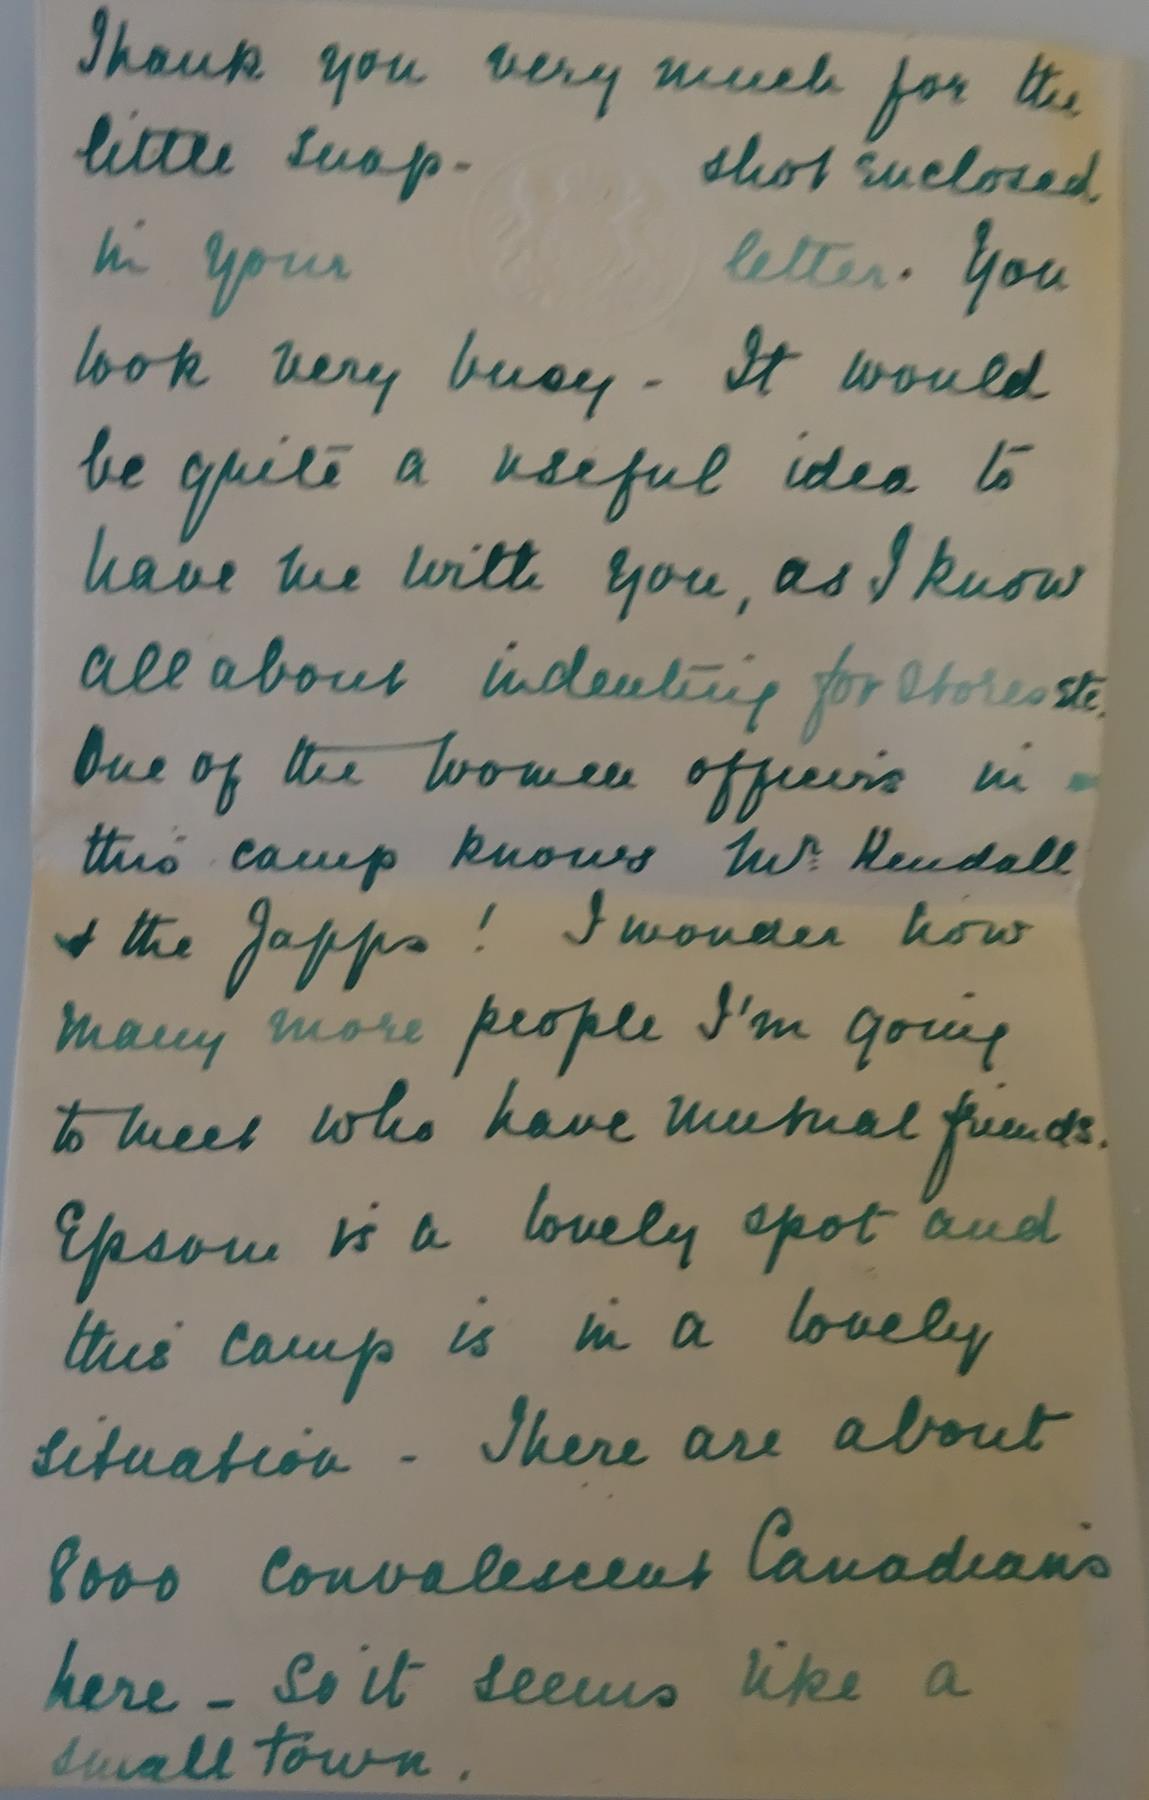 Thank you very much for the
little snap- shot enclosed
in your letter. You
look very busy - It would
be quite a useful idea to
have me with you, as I know
all about indenting for stores etc.
One of the women officers in
this camp knows Mr. Kendall
& the Japps! I wonder how
many more people I'm going
to meet who have mutual friends.
Epsom is a lovely spot and
this camp is in a lovely
situation - There are about
8000 convalescent Canadians
here - So it seems like a
small town.